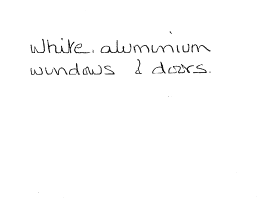 White. aluminium
windows & doors.